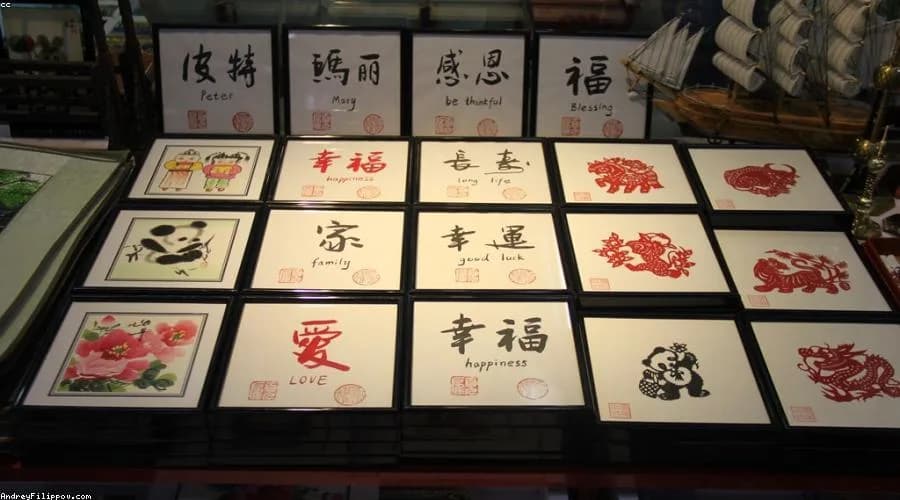 cc
彼特
Peter
瑪丽
Mary
感恩
be thinkful
福
Blessing
幸福
happiness
長寿
long life
家
family
幸運
good luck
愛
LOVE
幸福
happiness
AndreyFilippov.com